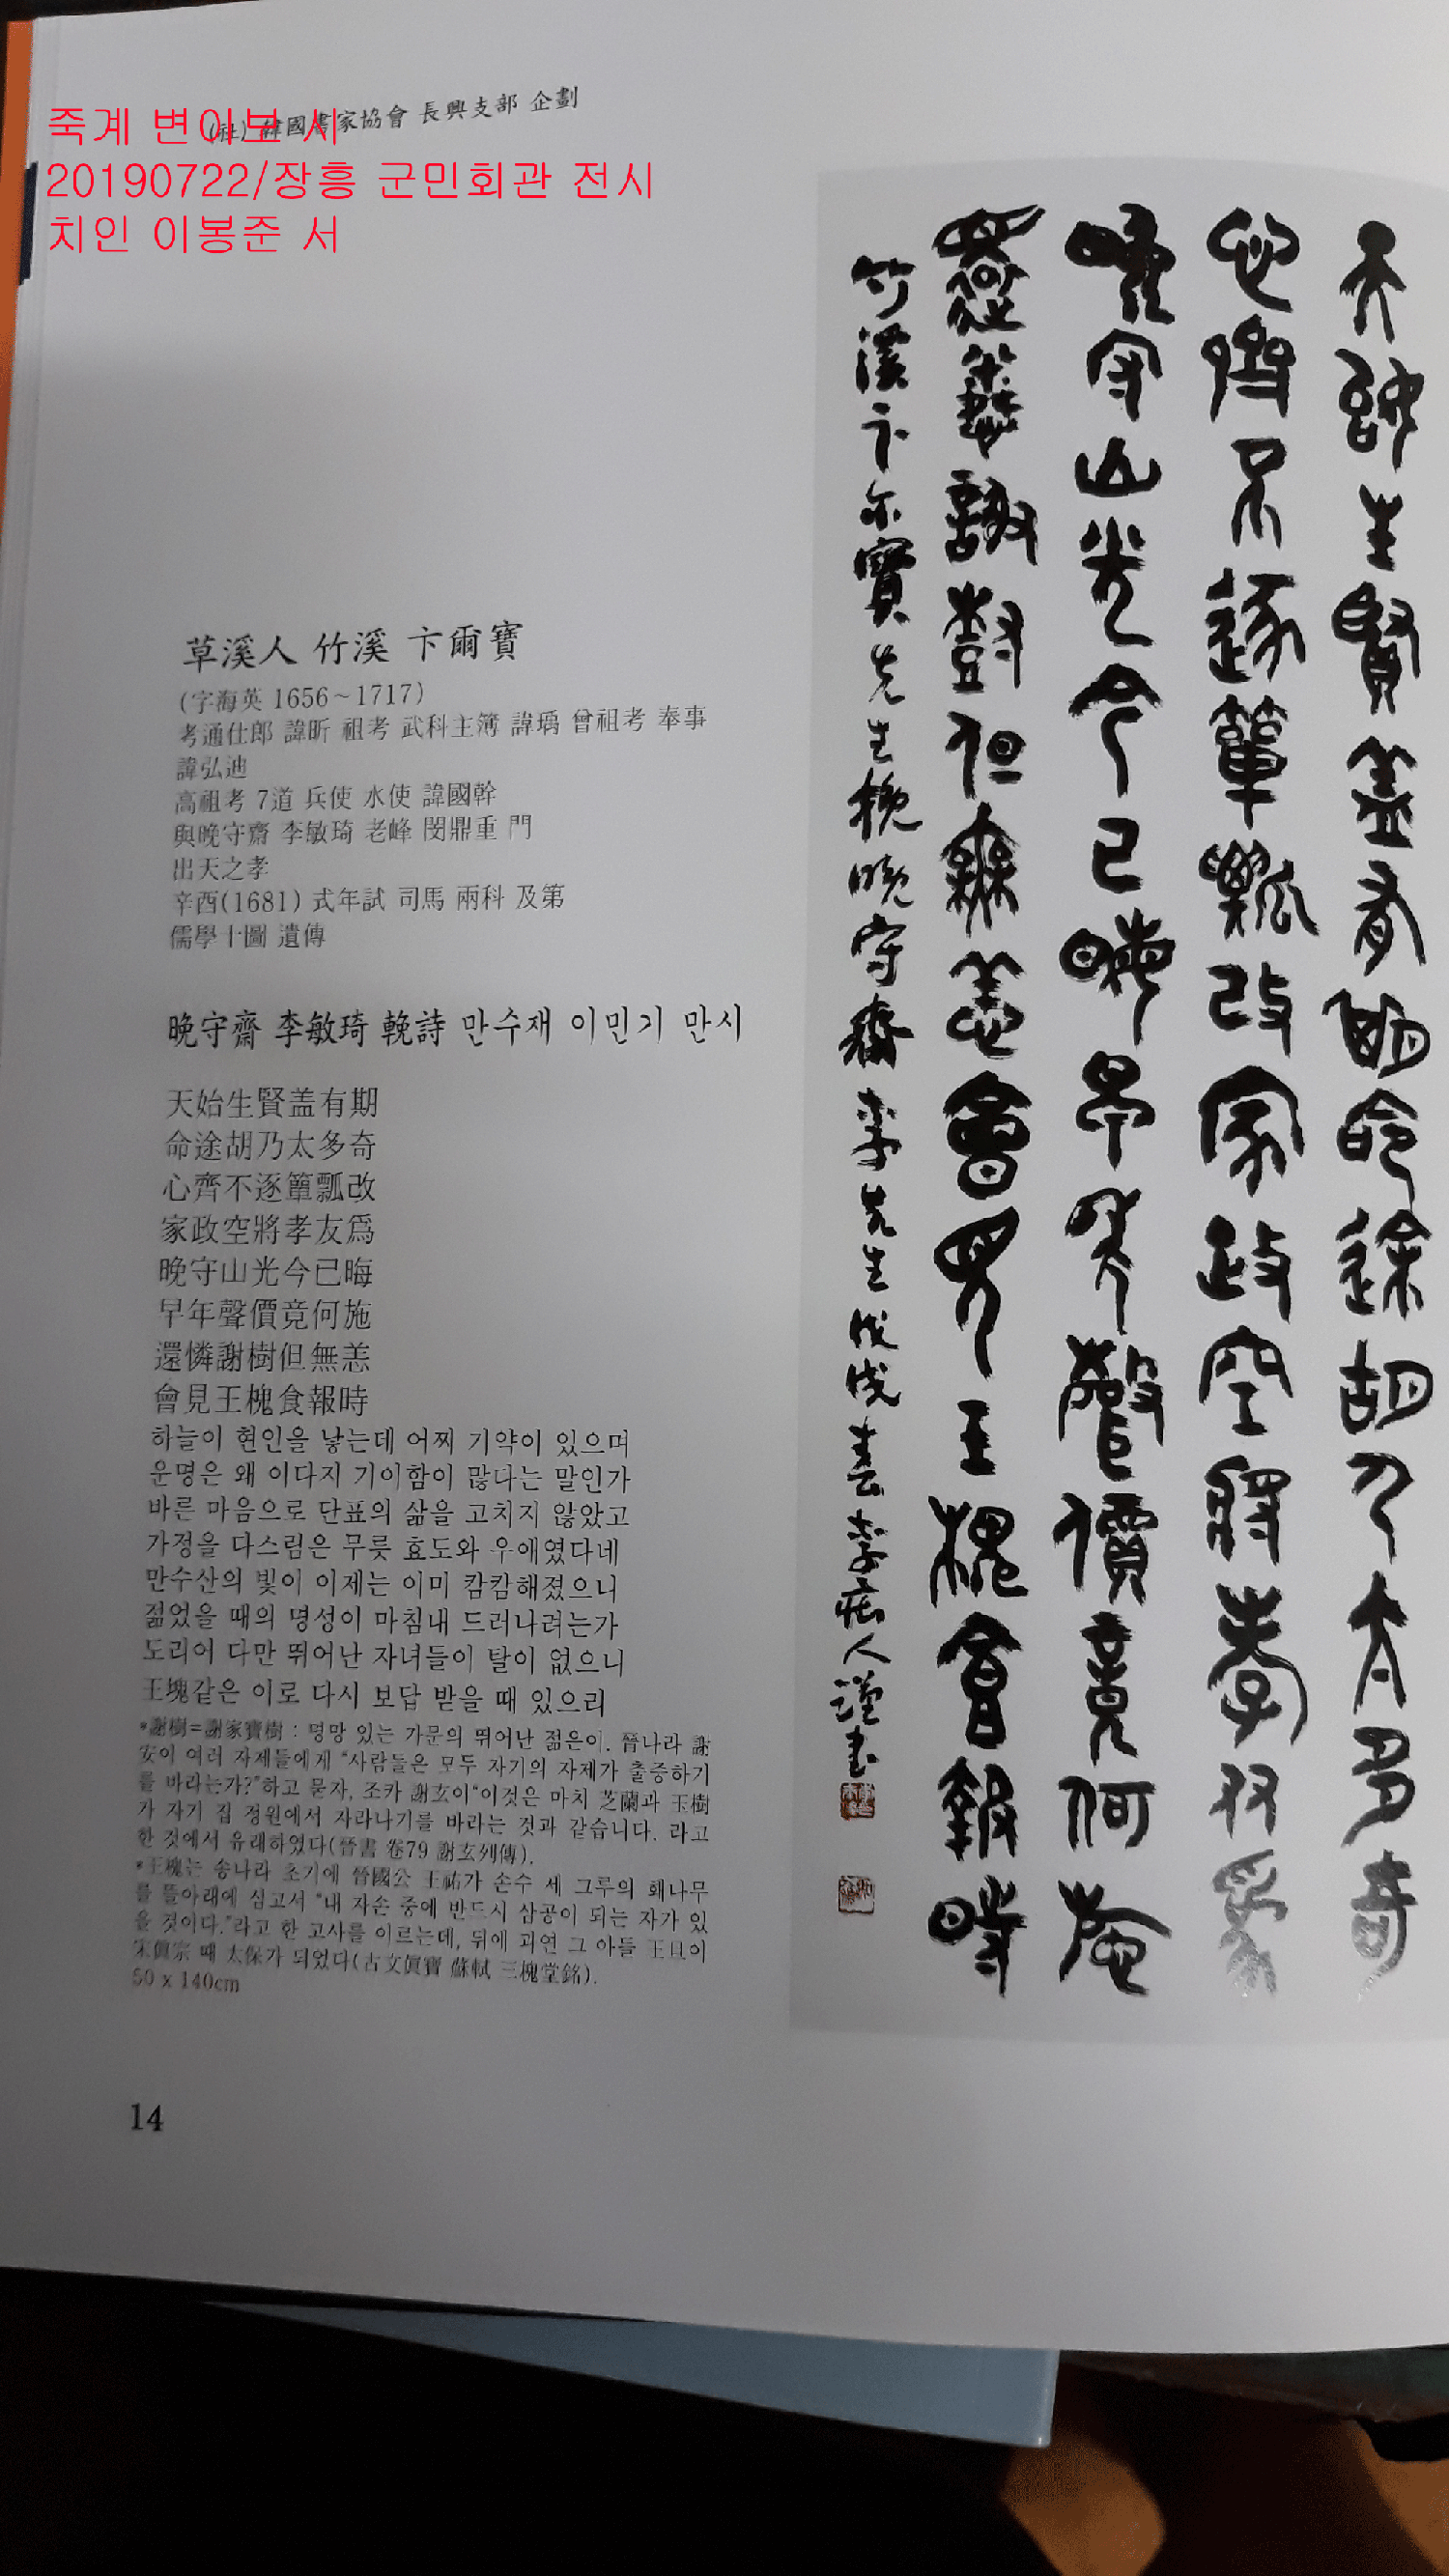 죽계 변이보 시
(社) 韓國書家協會 長興支部 企劃
20190722/장흥 군민회관 전시
치인 이봉준 서
草溪人 竹溪 卞爾寶
(字海英 1656~1717)
考通仕郎 諱昕 祖考 武科主簿 諱瑀 曾祖考 奉事
諱弘迪
高祖考 7道 兵使 水使 諱國幹
與晩守齋 李敏琦 老峰 閔鼎重 門
出天之孝
辛酉(1681) 式年試 司馬 兩科 及第
儒學十圖 遺傳
晩守齋 李敏琦 輓詩 만수재 이민기 만시
天始生賢盖有期
命途胡乃太多奇
心齊不逐簞瓢改
家政空將孝友爲
晩守山光今已晦
早年聲價竟何施
還憐謝樹但無恙
會見王槐食報時
하늘이 현인을 낳는데 어찌 기약이 있으며
운명은 왜 이다지 기이함이 많다는 말인가
바른 마음으로 단표의 삶을 고치지 않았고
가정을 다스림은 무릇 효도와 우애였다네
만수산의 빛이 이제는 이미 캄캄해졌으니
젊었을 때의 명성이 마침내 드러나려는가
도리어 다만 뛰어난 자녀들이 탈이 없으니
王塊같은 이로 다시 보답 받을 때 있으리
*謝樹=謝家寶樹 : 명망 있는 가문의 뛰어난 젊은이. 晉나라 謝
安이 여러 자제들에게 "사람들은 모두 자기의 자제가 출중하기
를 바라는가?"하고 묻자, 조카 謝玄이"이것은 마치 芝蘭과 玉樹
가 자기 집 정원에서 자라나기를 바라는 것과 같습니다. 라고
한 것에서 유래하였다(晉書 卷79 謝玄列傳).
*王槐는 송나라 초기에 晉國公 王祐가 손수 세 그루의 홰나무
를 뜰아래에 심고서 "내 자손 중에 반드시 삼공이 되는 자가 있
을 것이다."라고 한 고사를 이르는데, 뒤에 과연 그 아들 王旦이
宋眞宗 때 太保가 되었다(古文眞寶 蘇軾 三槐堂銘).
50 x 140cm
14
天始生賢盖有期命途胡乃太多奇
心齊不逐簞瓢改家政空將孝友爲
晩守山光今已晦早年聲價竟何施
還憐謝樹但無恙會見王槐食報時
竹溪卞尔寶先生輓晩守齋李先生 戊戌春 李痴人謹書